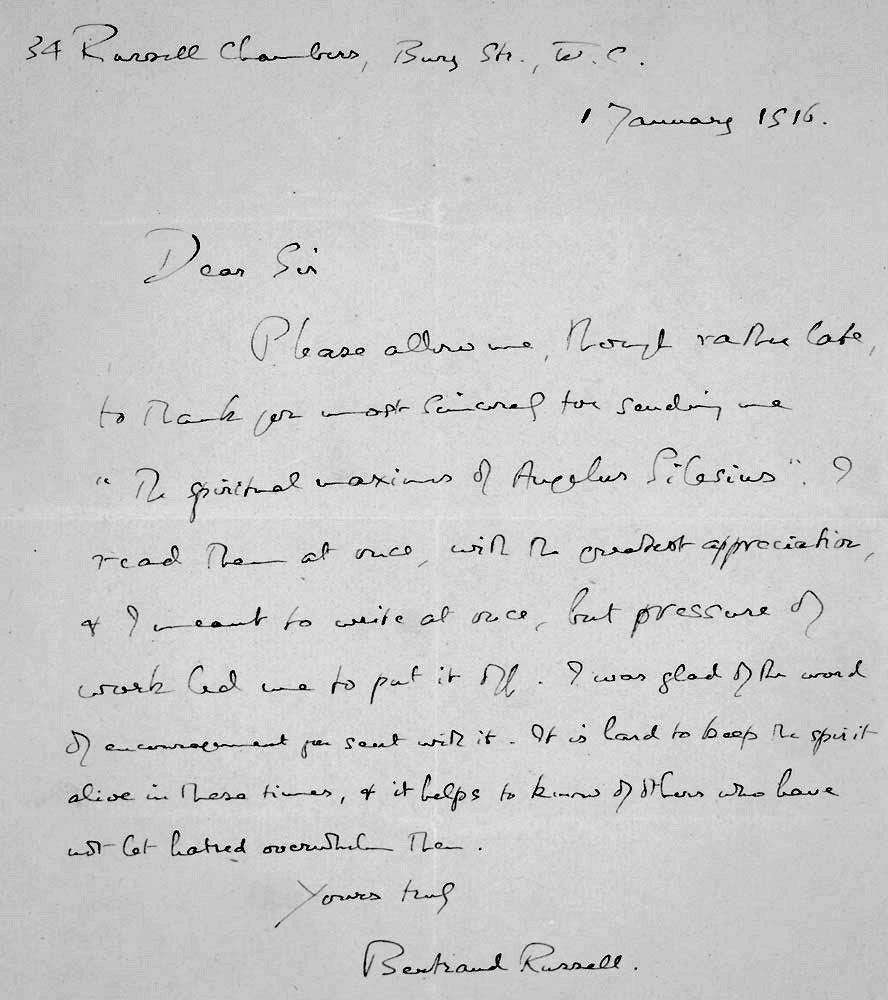 34 Russell Chambers, Bury Str., W.C.
1 January 1916.
Dear Sir
Please allow me, though rather late,
to thank you most sincerely for sending me
"The spiritual maxims of Angelus Silesius". I
read them at once, with the greatest appreciation,
& I meant to write at once, but pressure of
work led me to put it off. I was glad of the word
of encouragement you sent with it. It is hard to keep the spirit
alive in these times, & it helps to know of others who have
not let hatred overwhelm them.
Yours truly
Bertrand Russell.